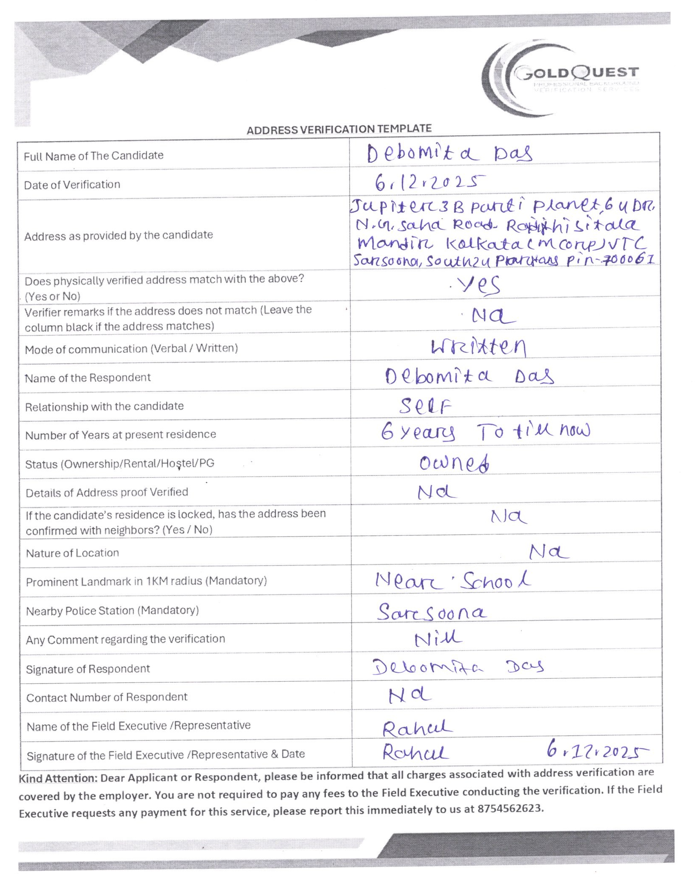 GOLDQUEST
VERIFICATION SERVICES
ADDRESS VERIFICATION TEMPLATE
Full Name of The Candidate Debomita Das
Date of Verification 6.12.2025
Address as provided by the candidate Jupiter 3B parti planet, 6 U DR.
N.G. saha Road Sitala
Mandir Kolkata (m corp) VTC
Sarsoona, South 24 Pin-700061
Does physically verified address match with the above? Yes
(Yes or No)
Verifier remarks if the address does not match (Leave the Na
column black if the address matches)
Mode of communication (Verbal / Written) Written
Name of the Respondent Debomita Das
Relationship with the candidate Self
Number of Years at present residence 6 years To till now
Status (Ownership/Rental/Hostel/PG Owned
Details of Address proof Verified Na
If the candidate's residence is locked, has the address been Na
confirmed with neighbors? (Yes / No)
Nature of Location Na
Prominent Landmark in 1KM radius (Mandatory) Near School
Nearby Police Station (Mandatory) Sarsoona
Any Comment regarding the verification Nill
Signature of Respondent Debomita Das
Contact Number of Respondent Na
Name of the Field Executive /Representative Rahul
Signature of the Field Executive /Representative & Date Rahul 6.12.2025
Kind Attention: Dear Applicant or Respondent, please be informed that all charges associated with address verification are
covered by the employer. You are not required to pay any fees to the Field Executive conducting the verification. If the Field
Executive requests any payment for this service, please report this immediately to us at 8754562623.